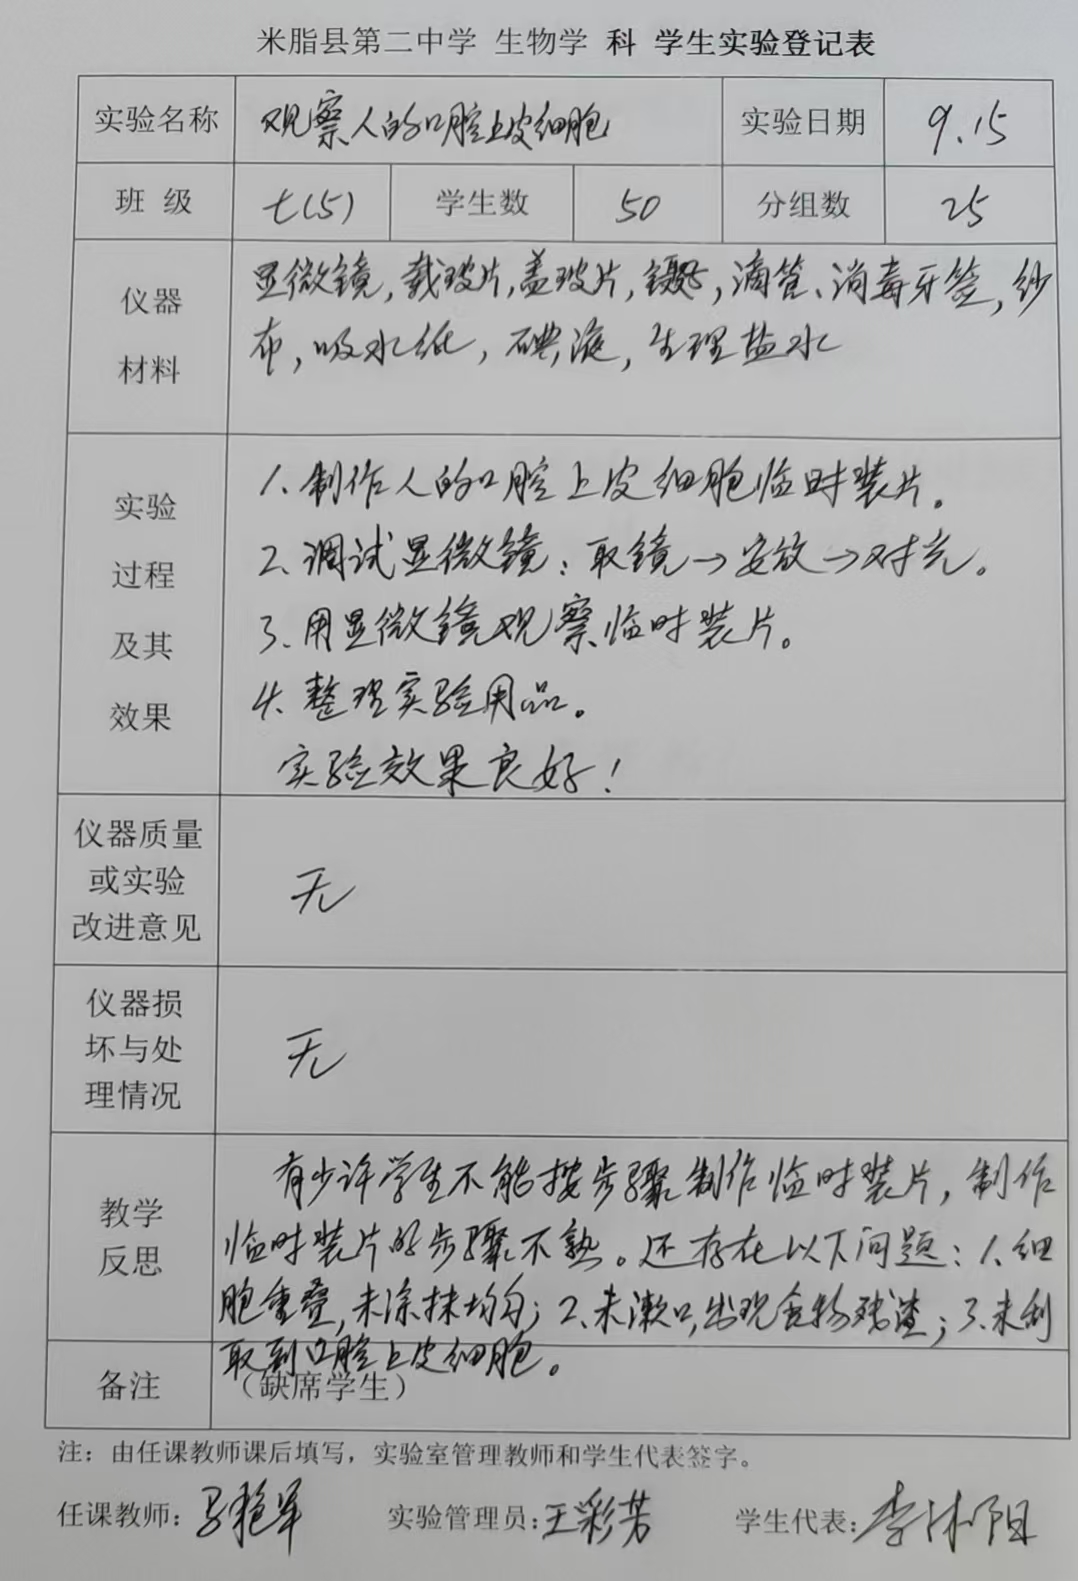 米脂县第二中学 生物学 科 学生实验登记表
实验名称 观察人的口腔上皮细胞 实验日期 9.15
班 级 七(5) 学生数 50 分组数 25
仪器
材料
显微镜,载玻片,盖玻片,镊子,滴管、消毒牙签,纱
布,吸水纸,碘液,生理盐水
实验
过程
及其
效果
1.制作人的口腔上皮细胞临时装片。
2、调试显微镜:取镜→安放→对光。
3、用显微镜观察临时装片。
4、整理实验用品。
实验效果良好!
仪器质量
或实验
改进意见
无
仪器损
坏与处
理情况
无
教学
反思
有少许学生不能按步骤制作临时装片,制作
临时装片的步骤不熟。还存在以下问题:1、细
胞重叠,未涂抹均匀;2、未漱口,出现食物残渣;3、未刮
取到口腔上皮细胞。
备注 (缺席学生)
注:由任课教师课后填写,实验室管理教师和学生代表签字。
任课教师:马艳军 实验管理员:王彩芳 学生代表:李沐阳